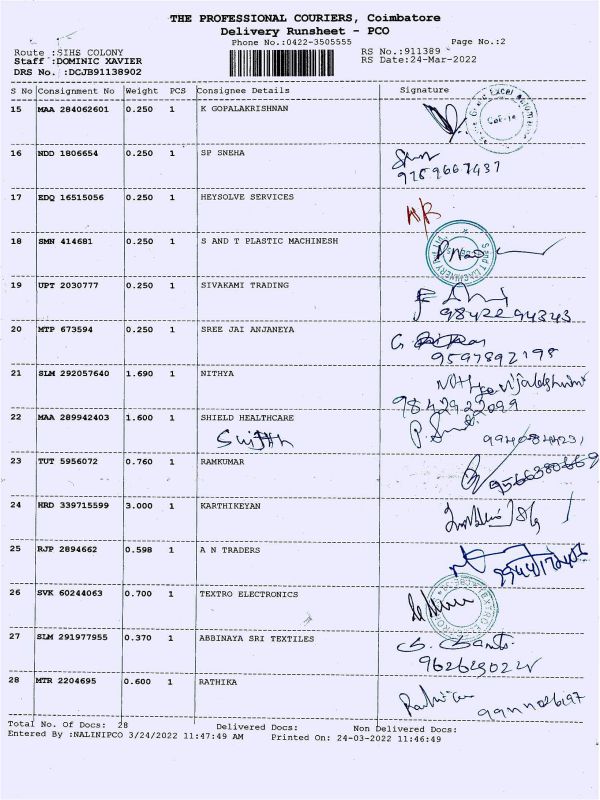 THE PROFESSIONAL COURIERS, Coimbatore
Delivery Runsheet - PCO
Phone No.:0422-3505555 Page No.:2
Route :SIHS COLONY RS No.:911389
Staff :DOMINIC XAVIER RS Date:24-Mar-2022
DRS No. :DCJB91138902
S No Consignment No Weight PCS Consignee Details Signature
15 MAA 284062601 0.250 1 K GOPALAKRISHNAN
16 NDD 1806654 0.250 1 SP SNEHA
17 EDQ 16515056 0.250 1 HEYSOLVE SERVICES
18 SMN 414681 0.250 1 S AND T PLASTIC MACHINESH
19 UPT 2030777 0.250 1 SIVAKAMI TRADING
9842294343
20 MTP 673594 0.250 1 SREE JAI ANJANEYA
9597892198
21 SLM 292057640 1.690 1 NITHYA
9842922099
22 MAA 289942403 1.600 1 SHIELD HEALTHCARE
Sujith
23 TUT 5956072 0.760 1 RAMKUMAR
24 HRD 339715599 3.000 1 KARTHIKEYAN
25 RJP 2894662 0.598 1 A N TRADERS
26 SVK 60244063 0.700 1 TEXTRO ELECTRONICS
27 SLM 291977955 0.370 1 ABBINAYA SRI TEXTILES
28 MTR 2204695 0.600 1 RATHIKA
Total No. Of Docs: 28 Delivered Docs: Non Delivered Docs:
Entered By :NALINIPCO 3/24/2022 11:47:49 AM Printed On: 24-03-2022 11:46:49